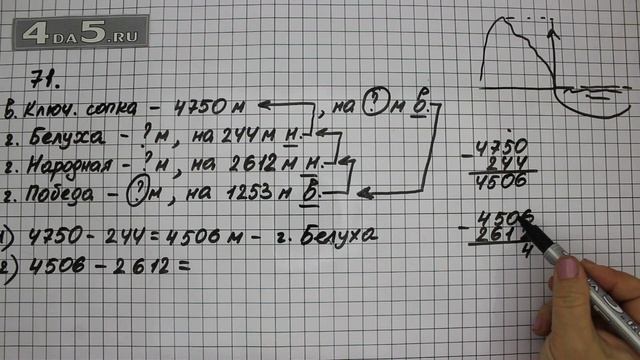 4DA5.RU
71.
в. Ключ. сопка – 4750 м , на ? м В.
г. Белуха – ? м, на 244 м н.
г. Народная – ? м, на 2612 м н.
г. Победа – ? м, на 1253 м В.
1) 4750 – 244 = 4506 м – г. Белуха
2) 4506 – 2612 =
– 4750
244
4506
– 4506
2612
4